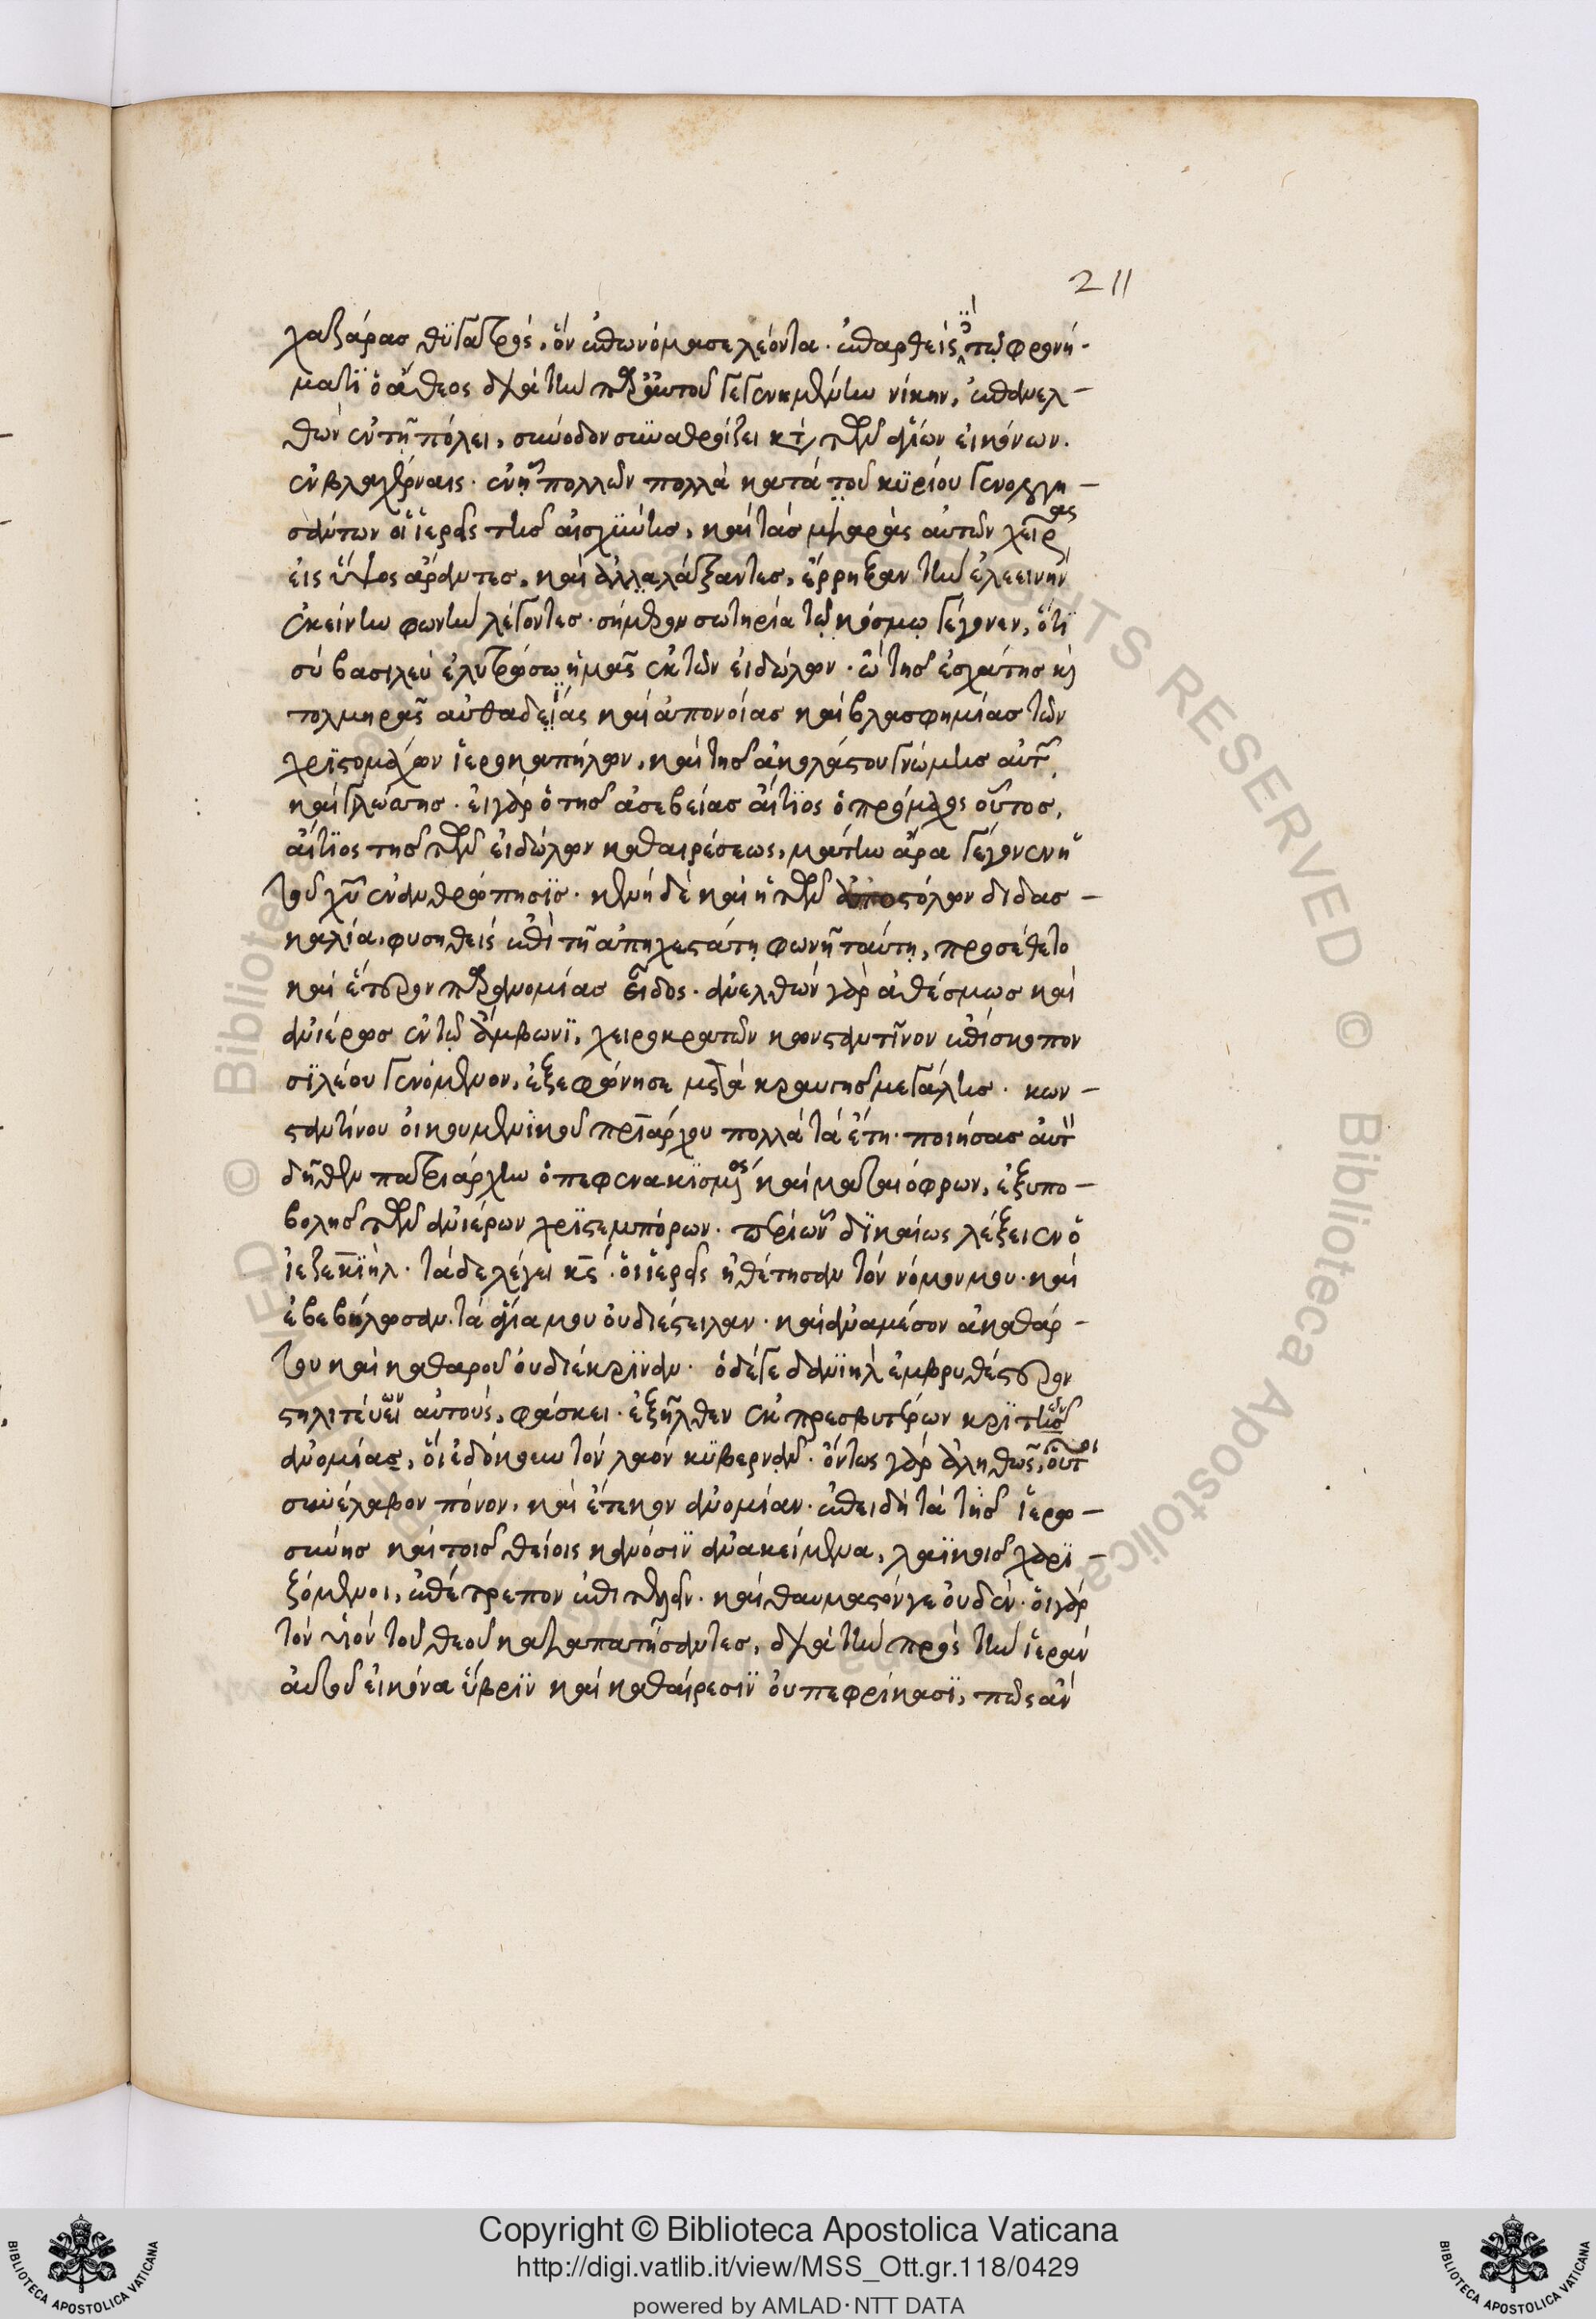 211
χαζάρας θϋγατρός, ὃν ἐπωνόμασε λέοντα. ἐπαρθεὶς τῷ φρονή-
ματϊ ὁ ἄθεος διὰ τὴν παρ' αὐτοῦ γεγενημένην νίκην, ἐπανελ-
θὼν ἐν τῇ πόλει, σύνοδον συναθροίζει κατὰ τῶν ἁγίων εἰκόνων.
ἐν βλαχέρναις. ἐν ᾗ πολλῶν πολλὰ κατὰ τοῦ κϋρίου
σάντων οἱ ἱερεῖς τῆς αἰσχύνης, καὶ τὰς μιαρὰς αὐτῶν χεῖρας
εἰς ὕψος ἄραντες, καὶ ἀλλαλάξαντες, ἔρρηξαν τὴν ἐλεεινὴν
ἐκείνην φωνὴν λέγοντες. σήμερον σωτηρία τῷ κόσμῳ γέγονεν, ὅτϊ
σὺ βασιλεῦ ἐλυτρώσω ἡμᾶς ἐκ τῶν εἰδώλων. ὢ τῆς ἐσχάτης καὶ
τολμηρᾶς αὐθαδείας καὶ ἀπονοίας καὶ βλασφημίας τῶν
χρϊστομάχων ἱεροκαπήλων, καὶ τῆς ἀκολάστου γνώμης αὐτῶν
καὶ γλώττης. εἰ γὰρ ὁ τῆς ἀσεβείας αἴτϊος ὁ πρόμαχος οὗτος,
αἴτϊος τῆς τῶν εἰδώλων καθαιρέσεως, μάτην ἄρα γέγονεν ἡ
τοῦ χυ ἐνανθρώπησϊς. κενὴ δὲ καὶ ἡ τῶν ἀποστόλων διδασ-
καλία. φυσηθεὶς ἐπὶ τῇ ἀπηχεστάτῃ φωνῇ ταύτῃ, προσέθετο
καὶ ἕτερον παρανομίας εἶδος. ἀνελθὼν γὰρ ἀθέσμως καὶ
ἀνιέρως ἐν τῷ ἄμβωνϊ, χειροκρατῶν κωνσταντῖνον ἐπίσκοπον
σϊλέου γενόμενον, ἐξεφώνησε μετὰ κραυγῆς μεγάλης. κων-
σταντίνου οἰκουμενικοῦ πριάρχου πολλὰ τὰ ἔτη. ποιήσας αὐτὸν
δῆθεν πατριάρχην ὁ πεφενακϊσμένος καὶ ματαιόφρων, ἐξ ὑπο-
βολῆς τῶν ἀνιέρων χρϊστεμπόρων. περὶ ὧν δϊκαίως λέξειεν ὁ
ἰεζεκϊὴλ. τάδε λέγει κς. οἱ ἱερεῖς ἠθέτησαν τὸν νόμον μου. καὶ
ἐβεβήλωσαν τὰ ἅγιά μου οὐ διέστειλαν. καὶ ἀναμέσον ἀκαθάρ-
του καὶ καθαροῦ οὐ διέκρϊναν. ὁ δέ γε δανϊὴλ ἐμβρυθέστερον
στηλιτεύειν αὐτούς, φάσκει. ἐξῆλθεν ἐκ πρεσβυτέρων κρϊτῶν
ἀνομίας, οἳ ἐδόκουν τὸν λαὸν κϋβερνᾶν. ὄντως γὰρ ἀληθῶς, οὗτοι
συνέλαβον πόνον, καὶ ἔτεκον ἀνομίαν. ἐπειδὴ τὰ τῆς ἱερω-
σύνης καὶ τοῖς θείοις κανόσϊν ἀνακείμενα, λαϊκοῖς χαρϊ-
ζόμενοι, ἐπέτρεπον ἐπιτελεῖν. καὶ θαυμαστόν γε οὐδέν. οἱ γὰρ
τὸν υἱὸν τοῦ θεοῦ καταπατήσαντες, διὰ τὴν πρὸς τὴν ἱερὰν
αὐτοῦ εἰκόνα ὕβρϊν καὶ καθαίρεσϊν οὐ πεφρίκασϊ, πῶς ἂν
Copyright © Biblioteca Apostolica Vaticana
http://digi.vatlib.it/view/MSS_Ott.gr.118/0429
powered by AMLAD·NTT DATA